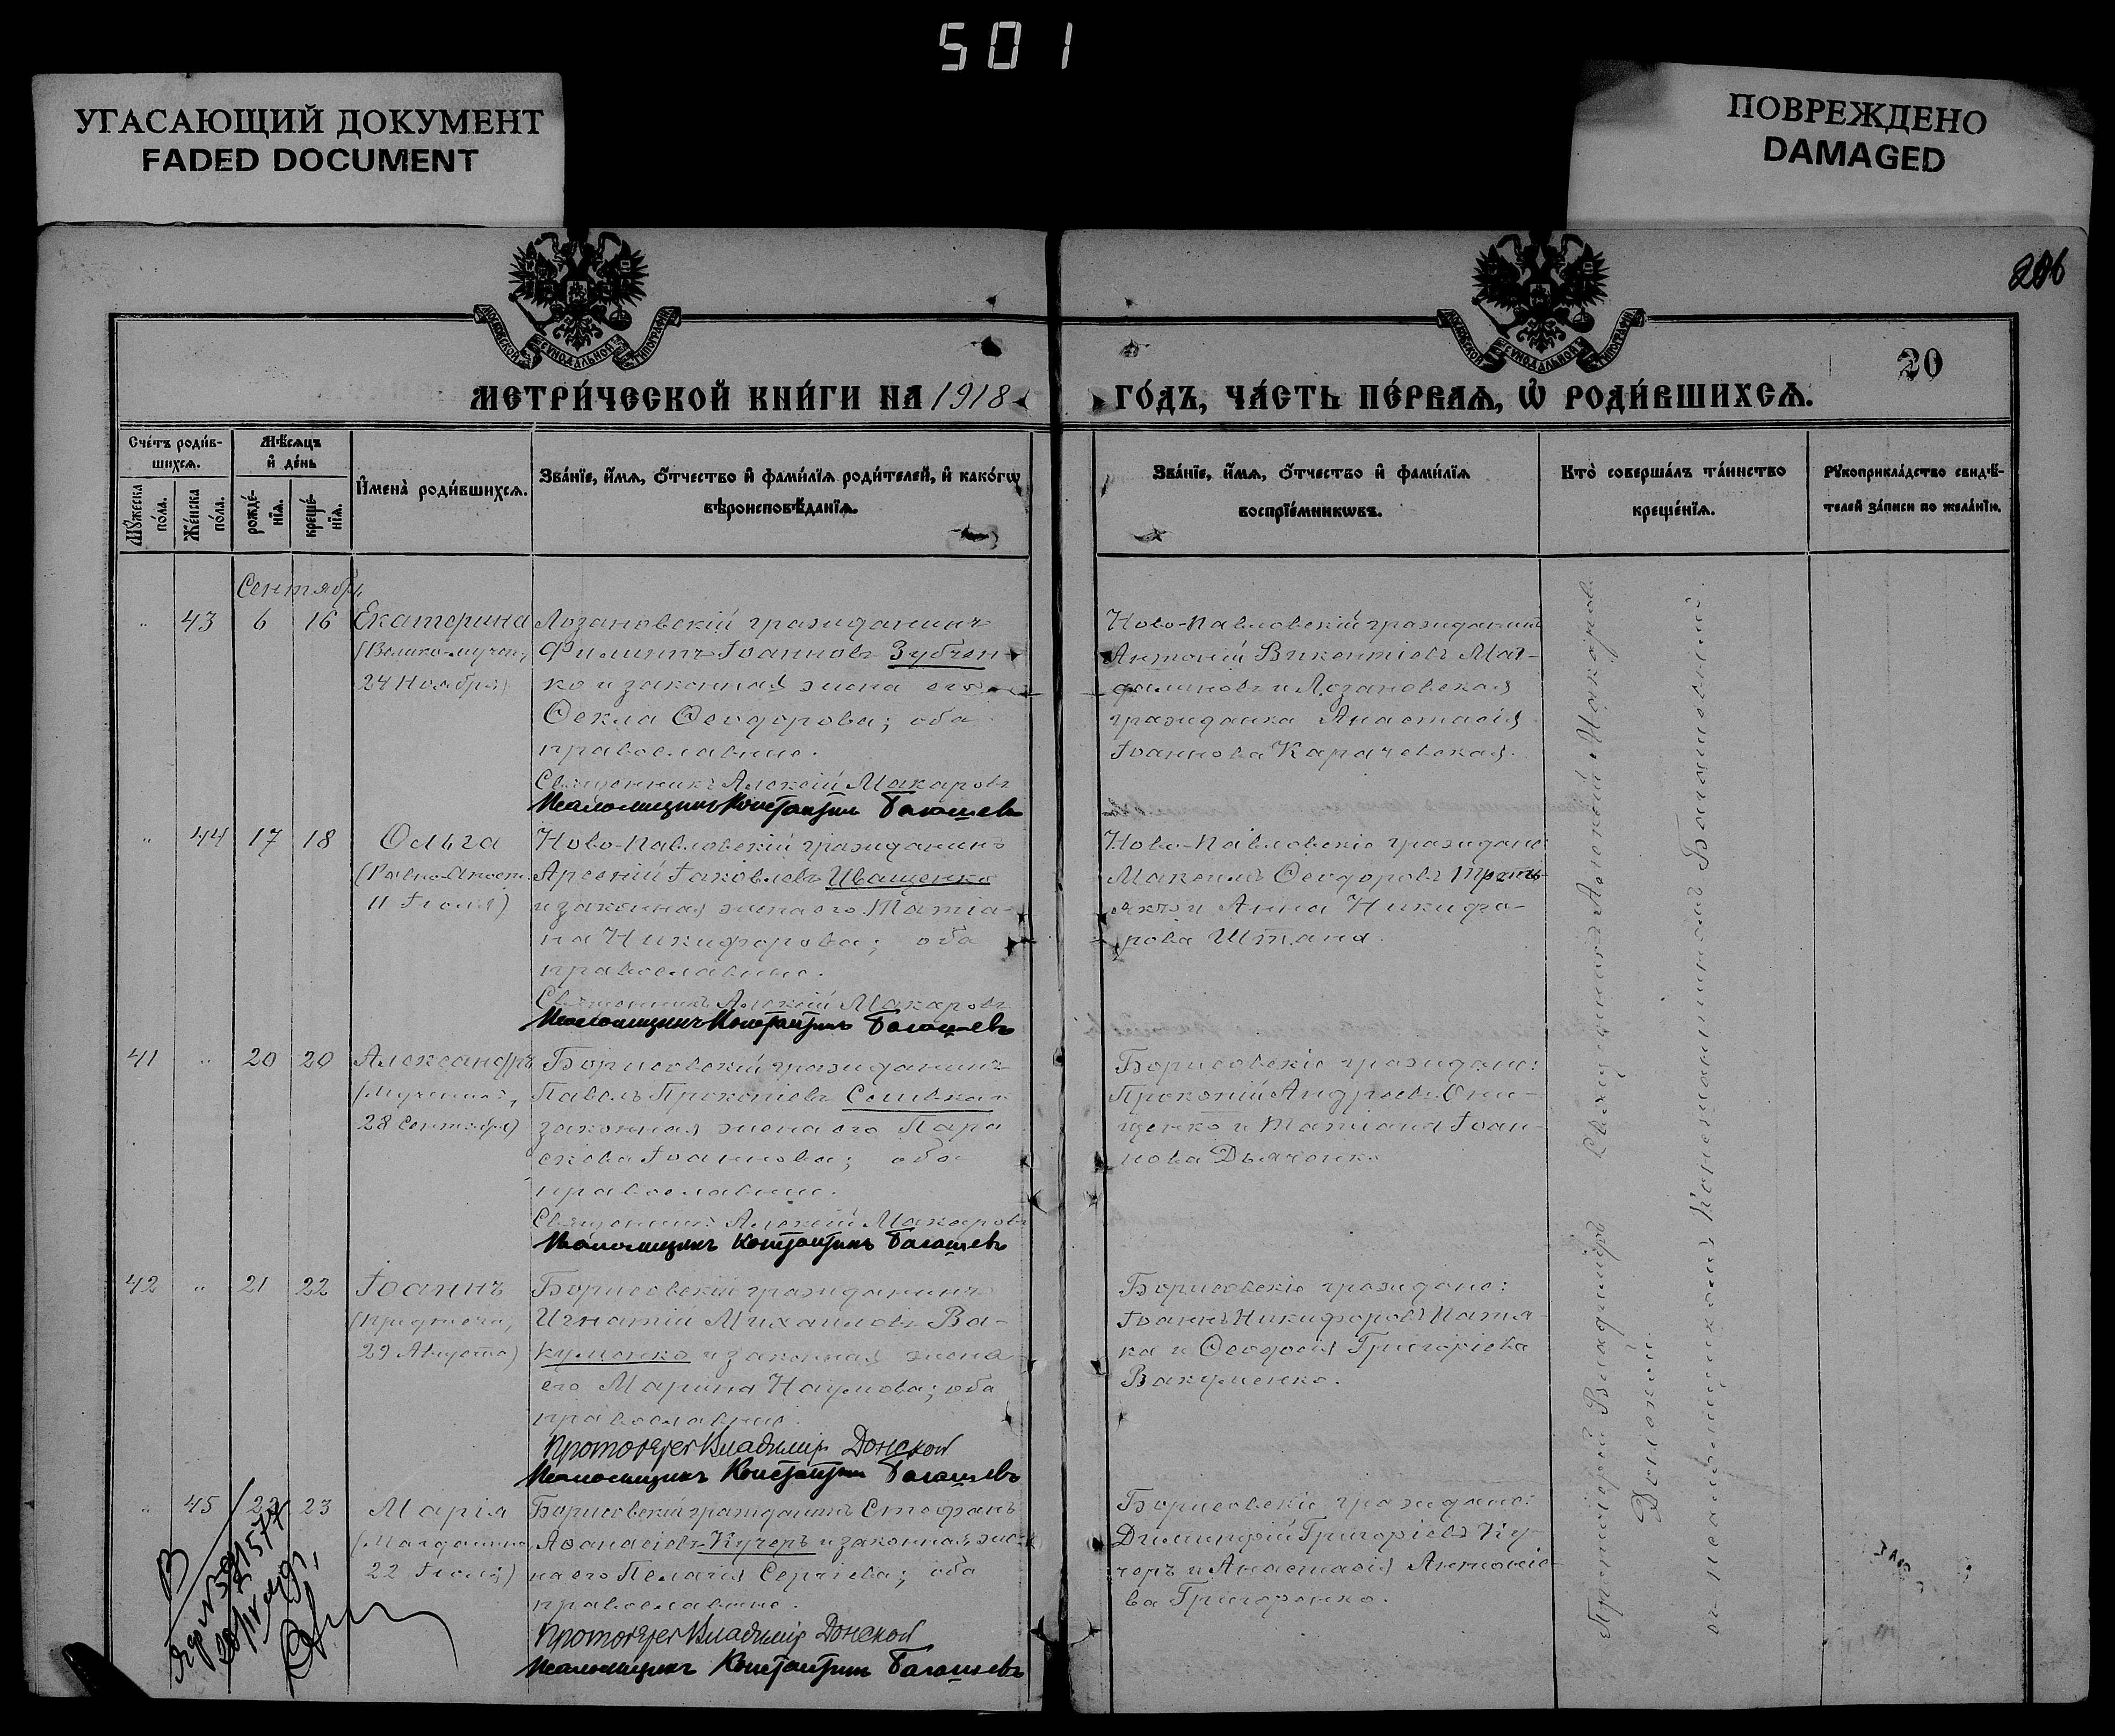 501
УГАСАЮЩИЙ ДОКУМЕНТ
FADED DOCUMENT
ПОВРЕЖДЕНО
DAMAGED
206
МОСКОВСКОЙ СѴНОДАЛЬНОЙ ТИПОГРАФІИ
МОСКОВСКОЙ СѴНОДАЛЬНОЙ ТИПОГРАФІИ
20
МЕТРИ́ЧЕСКОЙ КНИ́ГИ НА 1918
ГО́ДЪ, ЧА́СТЬ ПЕ́РВАѦ, Ѡ҆ РОДИ́ВШИХСѦ.
Сче́тъ роди́в-
шихсѧ.
Мꙋ́жеска по́ла.
Же́нска по́ла.
Мѣ́сѧцъ
и҆ де́нь
рожде́-
нїѧ.
креще́-
нїѧ.
И҆мена̀ роди́вшихсѧ.
Зва́нїе, и҆́мѧ, ѻ҆́тчество и҆ фами́лїѧ роди́телей, и҆ како́гѡ
вѣроисповѣ́данїѧ.
Зва́нїе, и҆́мѧ, ѻ҆́тчество и҆ фами́лїѧ
воспрїе́мникѡвъ.
Кто̀ соверша́лъ та́инство
креще́нїѧ.
Рꙋкоприкла́дство свидѣ́-
телей за́писи по жела́нїю.
Сентябрь
" 43 6 16 Екатерина
(Велико-мучен,
24 Ноября)
Лозановскій гражданинъ
Филиппъ Іоанновъ Зубчен-
ко и законная жена его
Ѳекла Ѳеодорова; оба
православные.
Священникъ Алексій Макаровъ
Псаломщикъ Константинъ Балашевъ
Ново-Павловскій гражданинъ
Антоній Викентіевъ Маг-
далиновъ и Лозановская
гражданка Анастасія
Іоаннова Карачевская.
" 44 17 18 Ольга
(Равно-Апост.
11 Іюля)
Ново-Павловскій гражданинъ
Арсеній Іаковлевъ Иващенко
и законная жена его Татіа-
на Никифорова; оба
православные.
Священникъ Алексій Макаровъ
Псаломщикъ Константинъ Балашевъ
Ново-Павловскіе граждане:
Максимъ Ѳеодоровъ
и Анна Никифо-
рова Штана.
41 " 20 20 Александръ
(Мученика,
28 Сентября)
Борисовскій гражданинъ
Павелъ Прокопіевъ
законная жена его Пара
скева Іоаннова; оба
православные.
Священникъ Алексій Макаровъ
Псаломщикъ Константинъ Балашевъ
Борисовскіе граждане:
Прокопій Андреевъ Они-
щенко и Татіана Іоан-
нова Дьяченко
42 " 21 22 Іоаннъ
(Предтечи,
29 Августа)
Борисовскій гражданинъ
Игнатій Михаиловъ Ва-
куменко и законная жена
его Марина Наумова; оба
православные.
Протоіерей Владимір Донской
Псаломщикъ Константинъ Балашевъ
Борисовскіе граждане:
Іоаннъ Никифоровъ
ка и Ѳеодосія Григоріева
Вакуменко.
" 45 22 23 Марія
(Магдалины,
22 Іюля)
Борисовскій гражданинъ Стефанъ
Аѳанасіевъ Кучеръ и законная же-
на его Пелагія Сергіева; оба
православные.
Протоіерей Владимір Донской
Псаломщикъ Константинъ Балашевъ
Борисовскіе граждане:
Григоріевъ Ку-
черъ и Анастасія Антоніе-
ва Григоренко.
Протоіерей Владиміръ Священникъ Алексій Макаровъ
Донской
съ псаломщикомъ Константиномъ Балашевымъ.